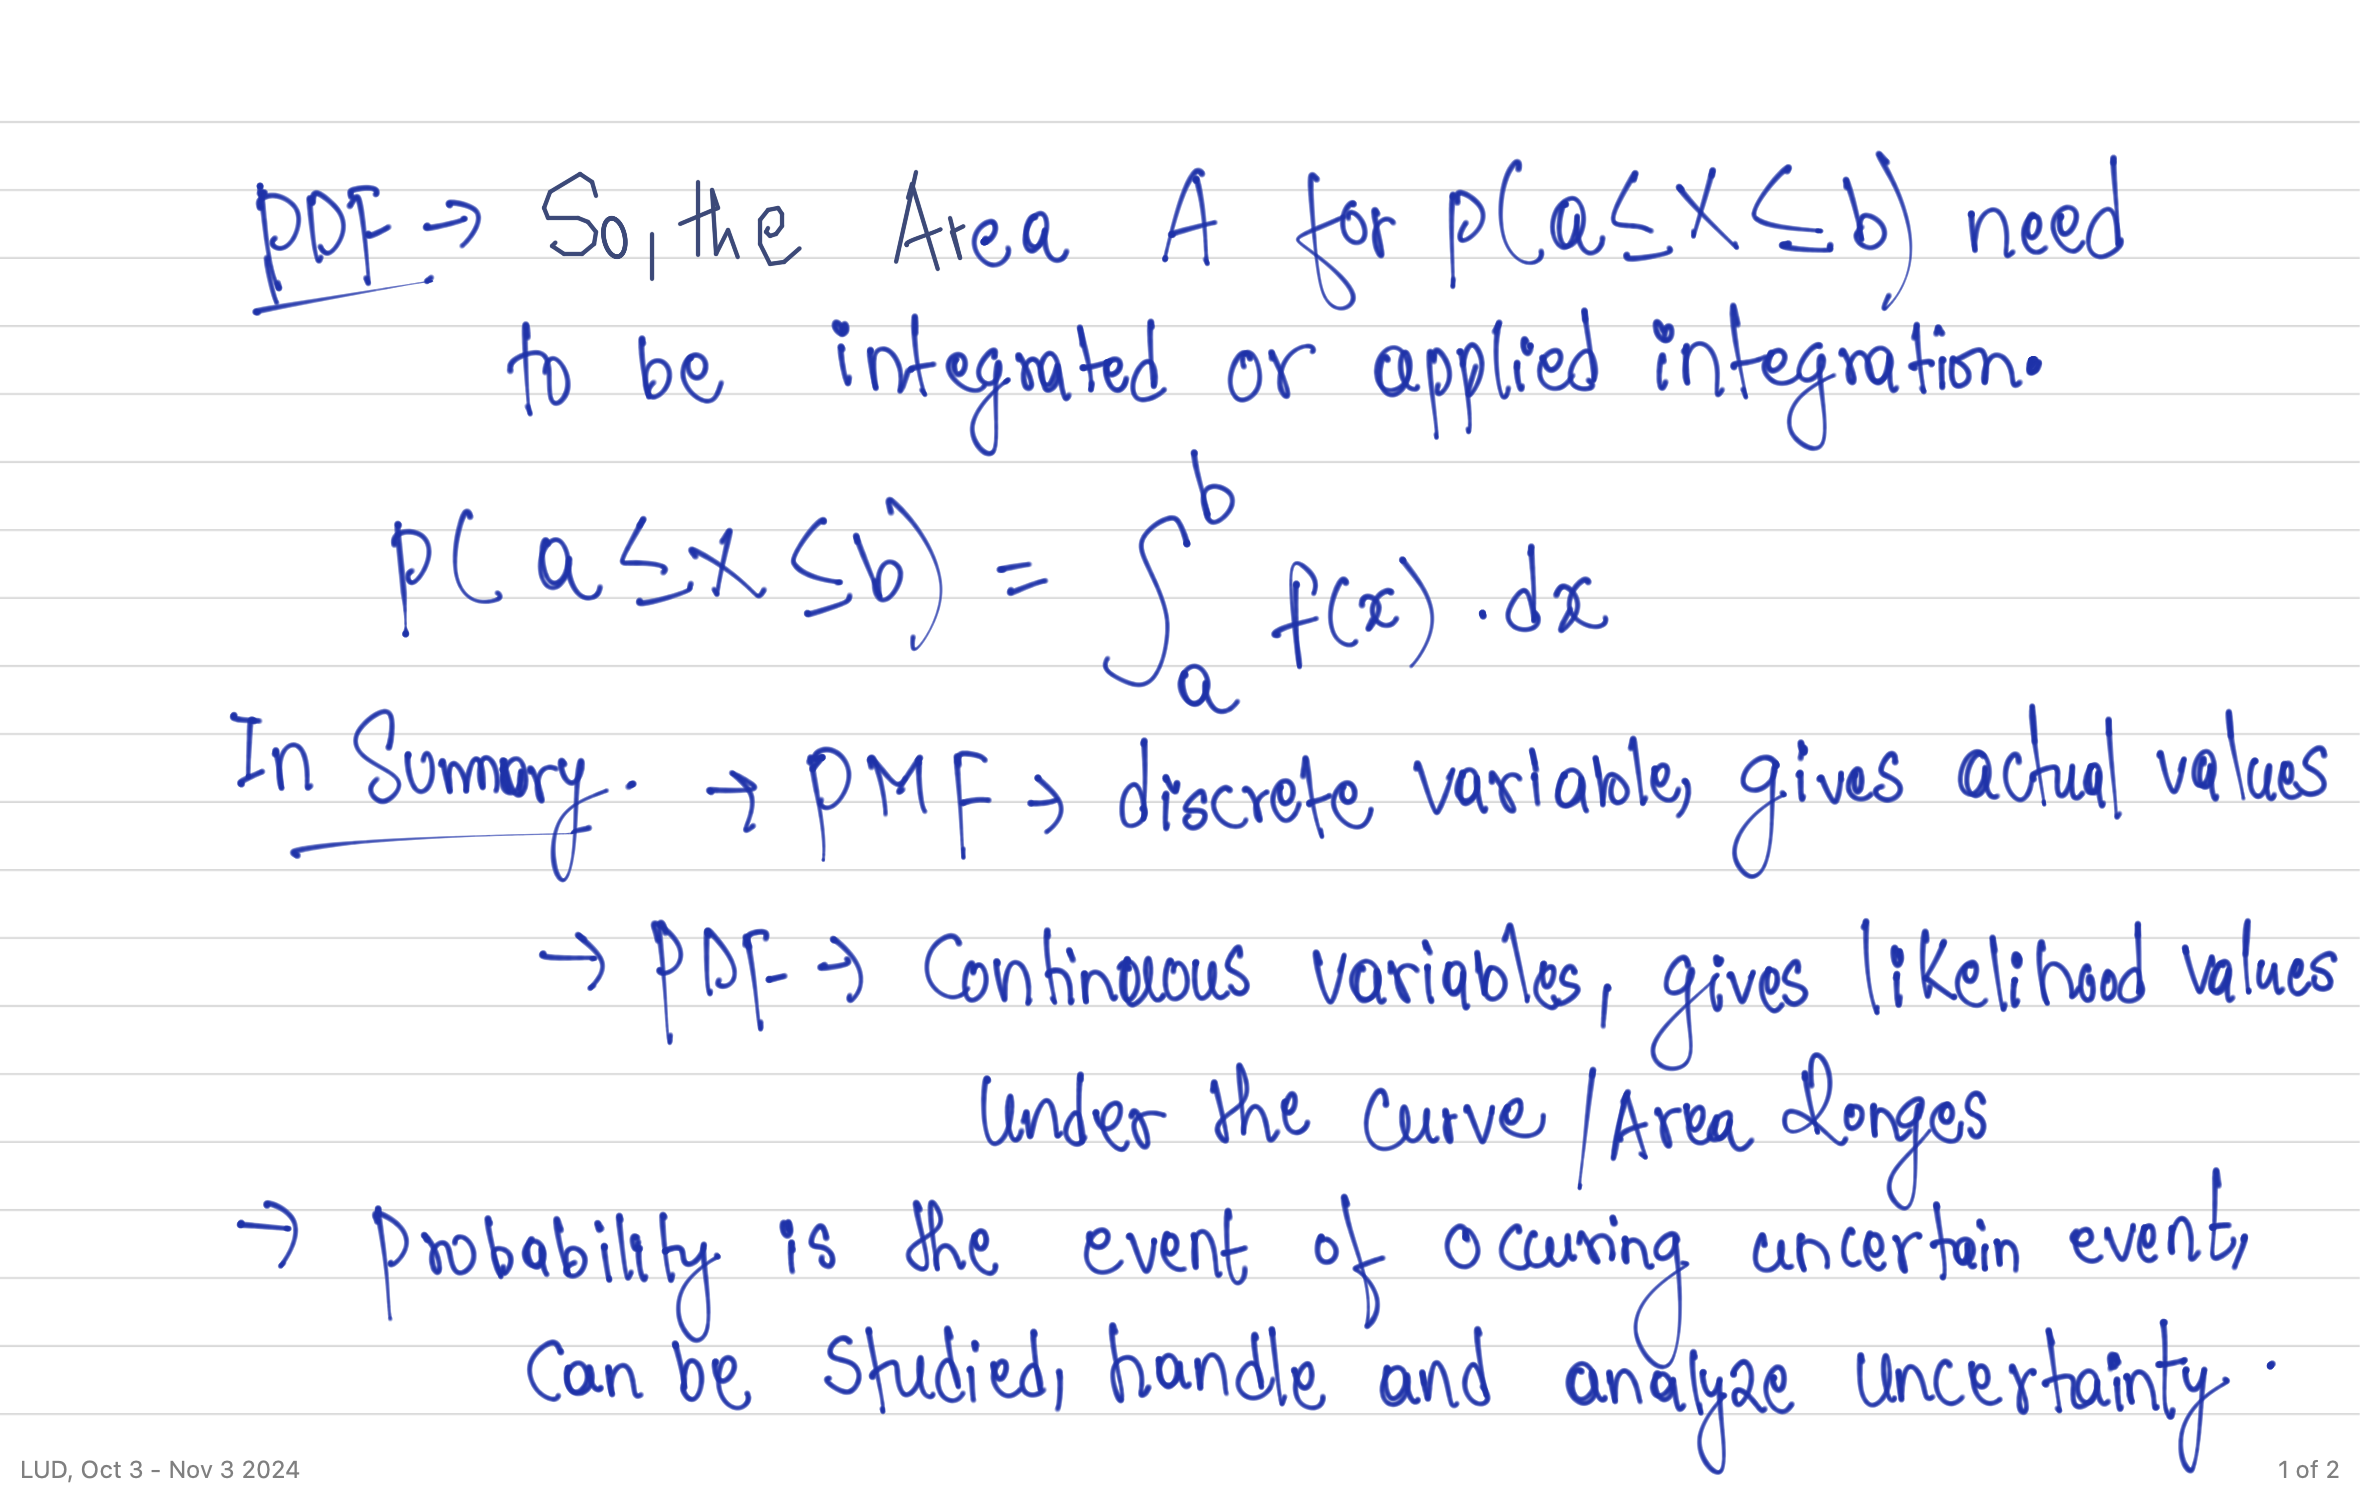 PDF → So, the Area A for P(a≤X≤b) need
to be integrated or applied integration.
P(a≤X≤b) = ∫_a^b f(x).dx
In Summary. → PMF → discrete variable, gives actual values
→ PDF → Continuous variables, gives likelihood values
under the curve / Area Ranges
→ Probability is the event of occuring uncertain event,
Can be studied, handle and analyze uncertainty.
LUD, Oct 3 - Nov 3 2024
1 of 2